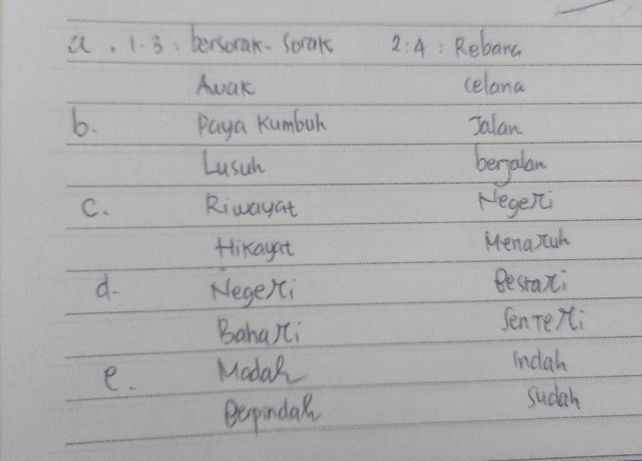 a. 1.3 : bersorak-sorak 2:4 : Rebana
Awak celana
b. Paya Kumbuh Jalan
Lusuh berjalan
c. Riwayat Negeri
Hikayat Menaruh
d. Negeri Bestari
Bahari Senteri
e. Madah indah
Berpindah sudah